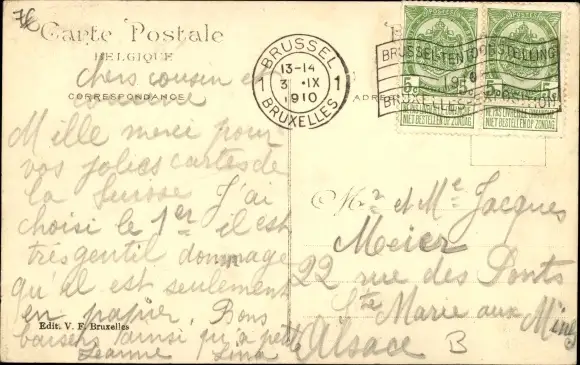 Carte Postale
BELGIQUE
CORRESPONDANCE
Chers cousin et
cousine
Mille merci pour
vos jolies cartes de
la Suisse J'ai
choisi le 1er il est
très gentil dommage
qu'il est seulement
en papier. Bons
baisers ainsi qu'a petite
Jeanne Lina
Edit. V. F. Bruxelles
BRUSSEL
13-14
3 . IX
1910
BRUXELLES
1 1
BRUSSEL TENTOONSTELLING
1910
BRUXELLES EXPOSITION
5 5
NE PAS LIVRER LE DIMANCHE
NIET BESTELLEN OP ZONDAG
NIET BESTELLEN OP ZONDAG
Mr et Me Jacques
Meier
22 rue des Ponts
Ste Marie aux Mines
Alsace B